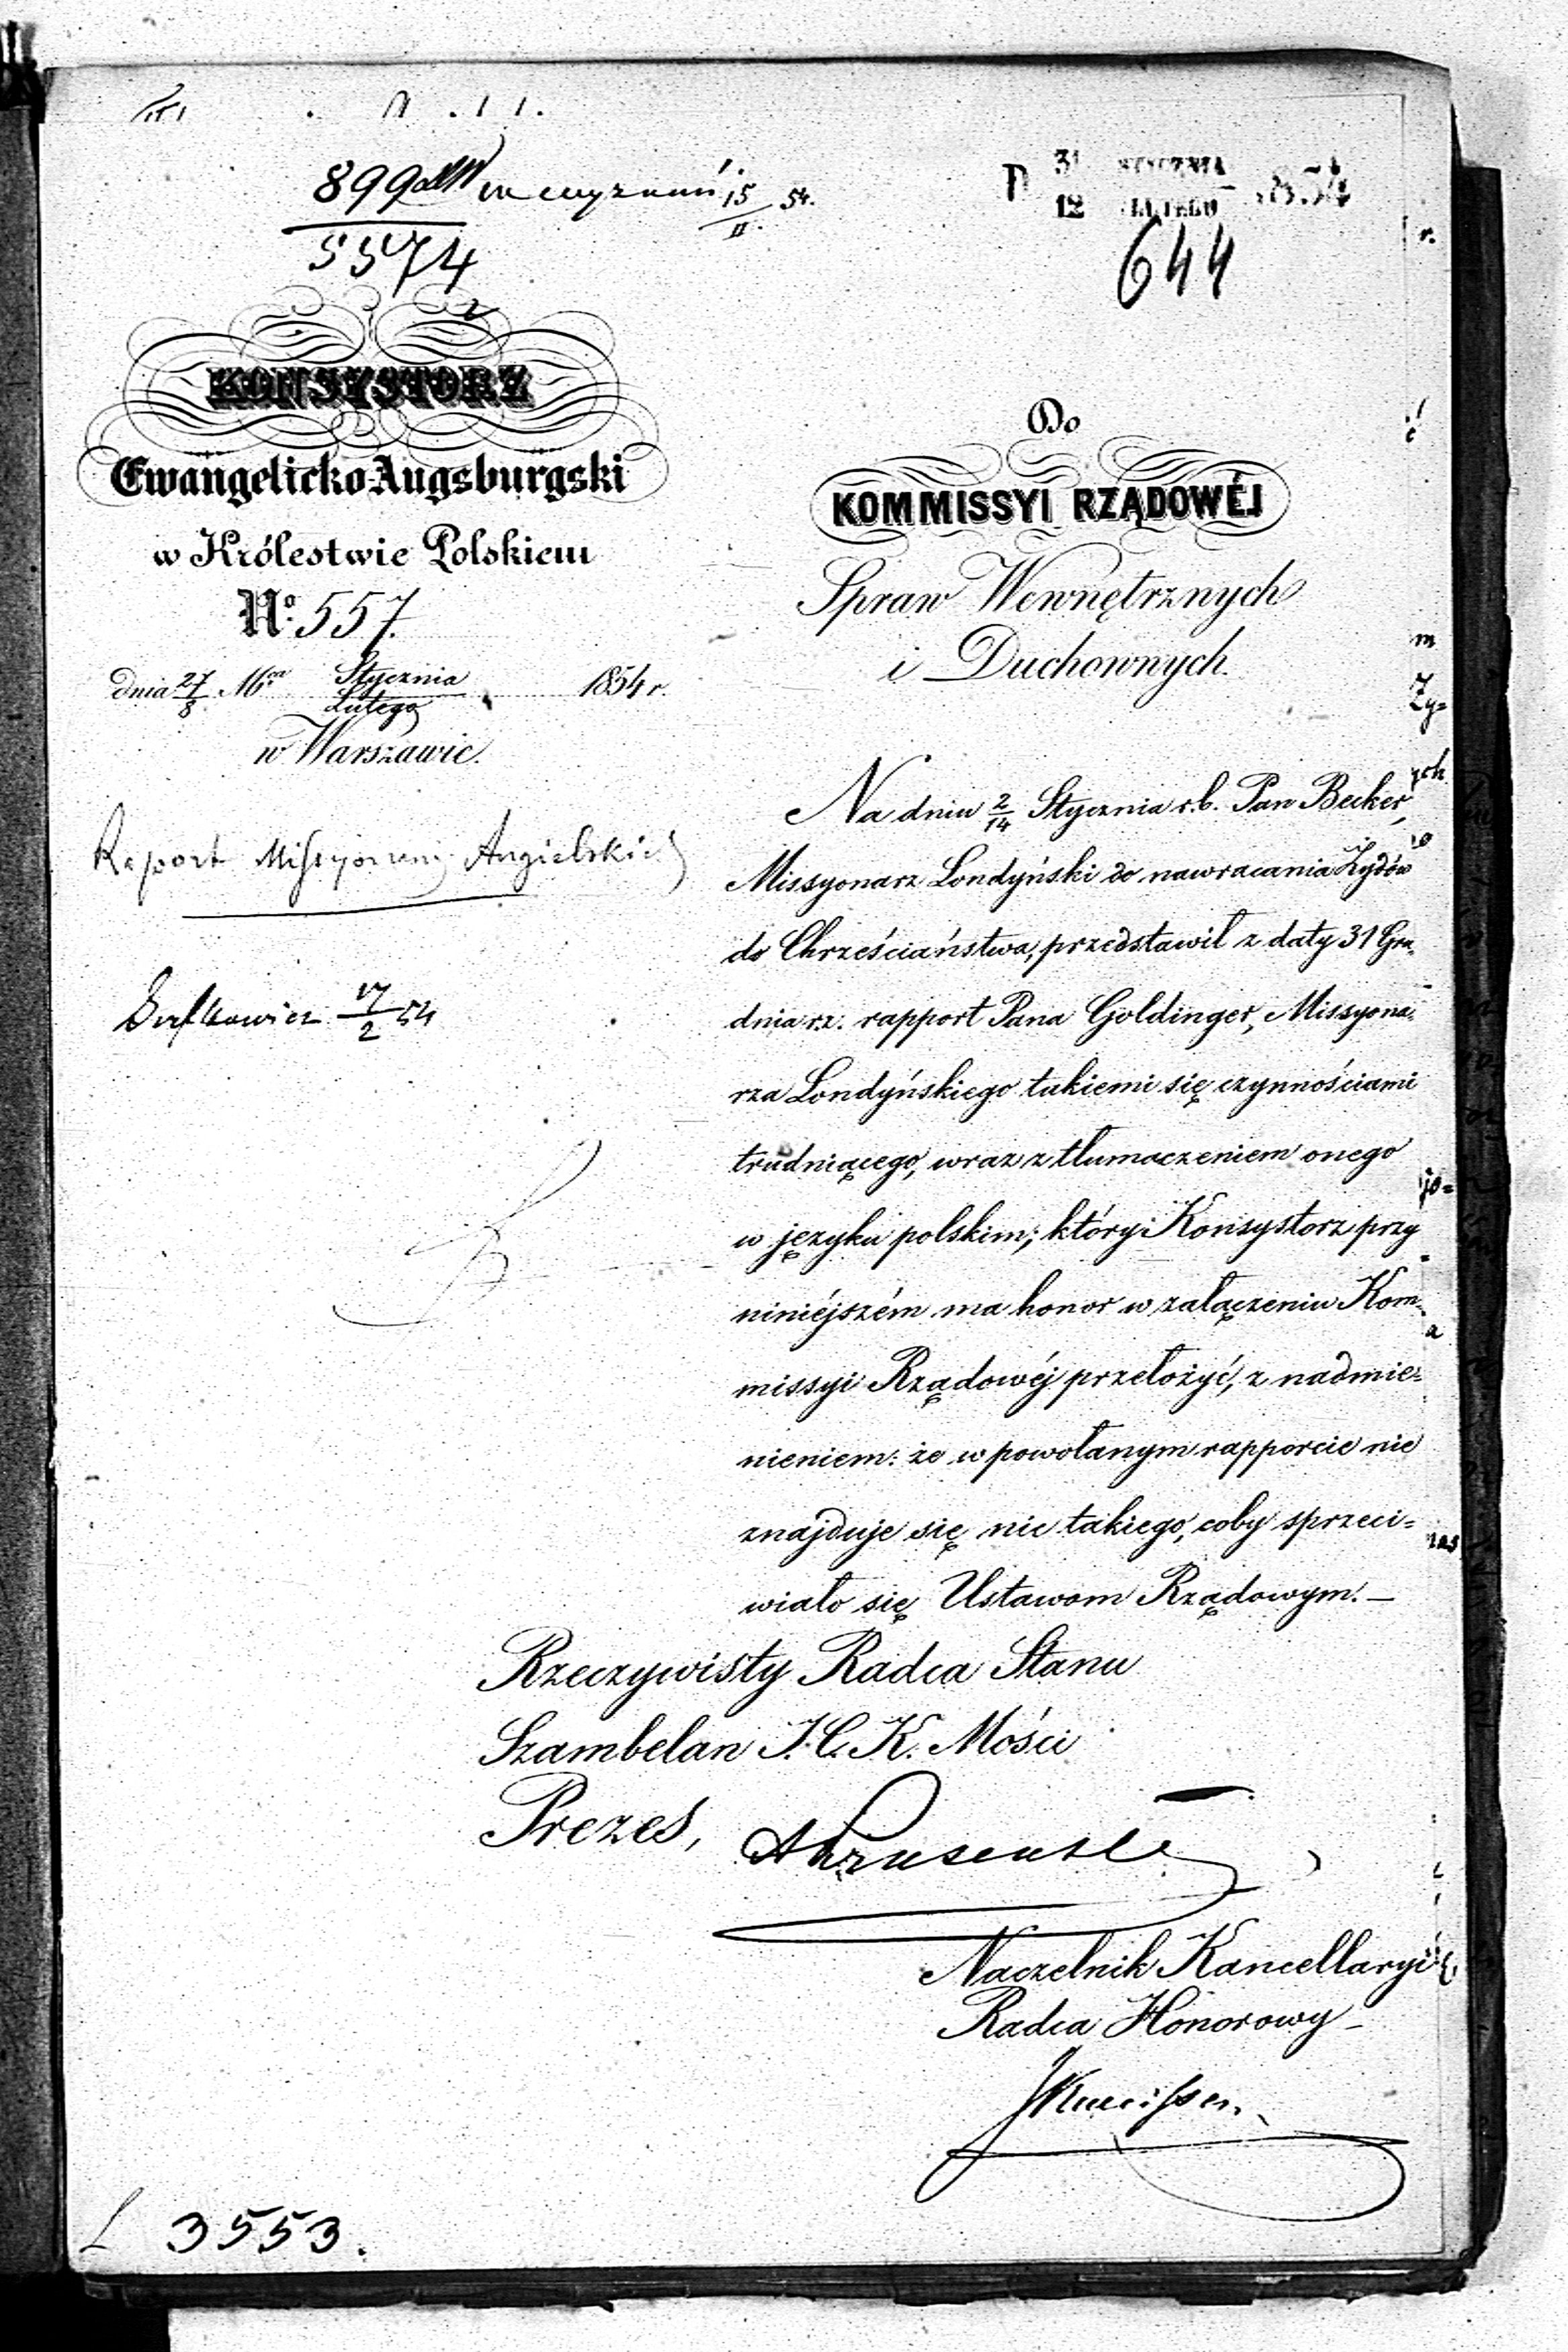 899
5574
15/II 54.
31 STYCZNIA
12 LUTEGO 1854
644
KONSYSTORZ
Ewangelicko-Augsburgski
w Królestwie Polskiem
No. 557.
dnia 27/8 Mca Stycznia/Lutego 1854 r.
w Warszawie.
Raport Missyonarzy Angielskich
17/2 54
Do
KOMMISSYI RZĄDOWÉJ
Spraw Wewnętrznych
i Duchownych.
Na dniu 2/14 Stycznia r.b. Pan Becker,
Missyonarz Londyński do nawracania Żydów
do Chrześciaństwa, przedstawił z daty 31 Gru-
dnia r.z. rapport Pana Goldinger, Missyona-
rza Londyńskiego takiemi się czynnościami
trudniącego, wraz z tłumaczeniem onego
w języku polskim; który Konsystorz przy
niniéjszém ma honor w załączeniu Kom-
missyi Rządowéj przełożyć, z nadmie-
nieniem: że w powołanym rapporcie nie
znajduje się nic takiego, coby sprzeci=
wiało się Ustawom Rządowym. —
Rzeczywisty Radca Stanu
Szambelan J. C. K. Mości
Prezes,
Naczelnik Kancellaryi
Radca Honorowy
3553.